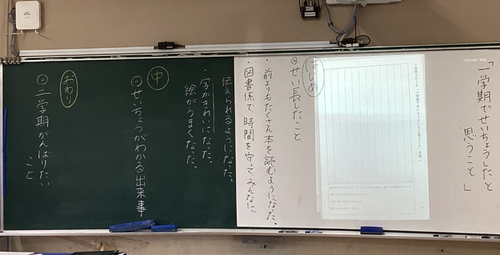 「一学期でせいちょうしたと
思うこと」
はじめ
◎せい長したこと
・前よりもたくさん本を読むようになった。
・図書係で時間を守って、みんなに
伝えられるようになった。
・字がきれいになった。
絵がうまくなった。
中
◎せいちょうがわかる出来事
おわり
◎二学期がんばりたい
こと